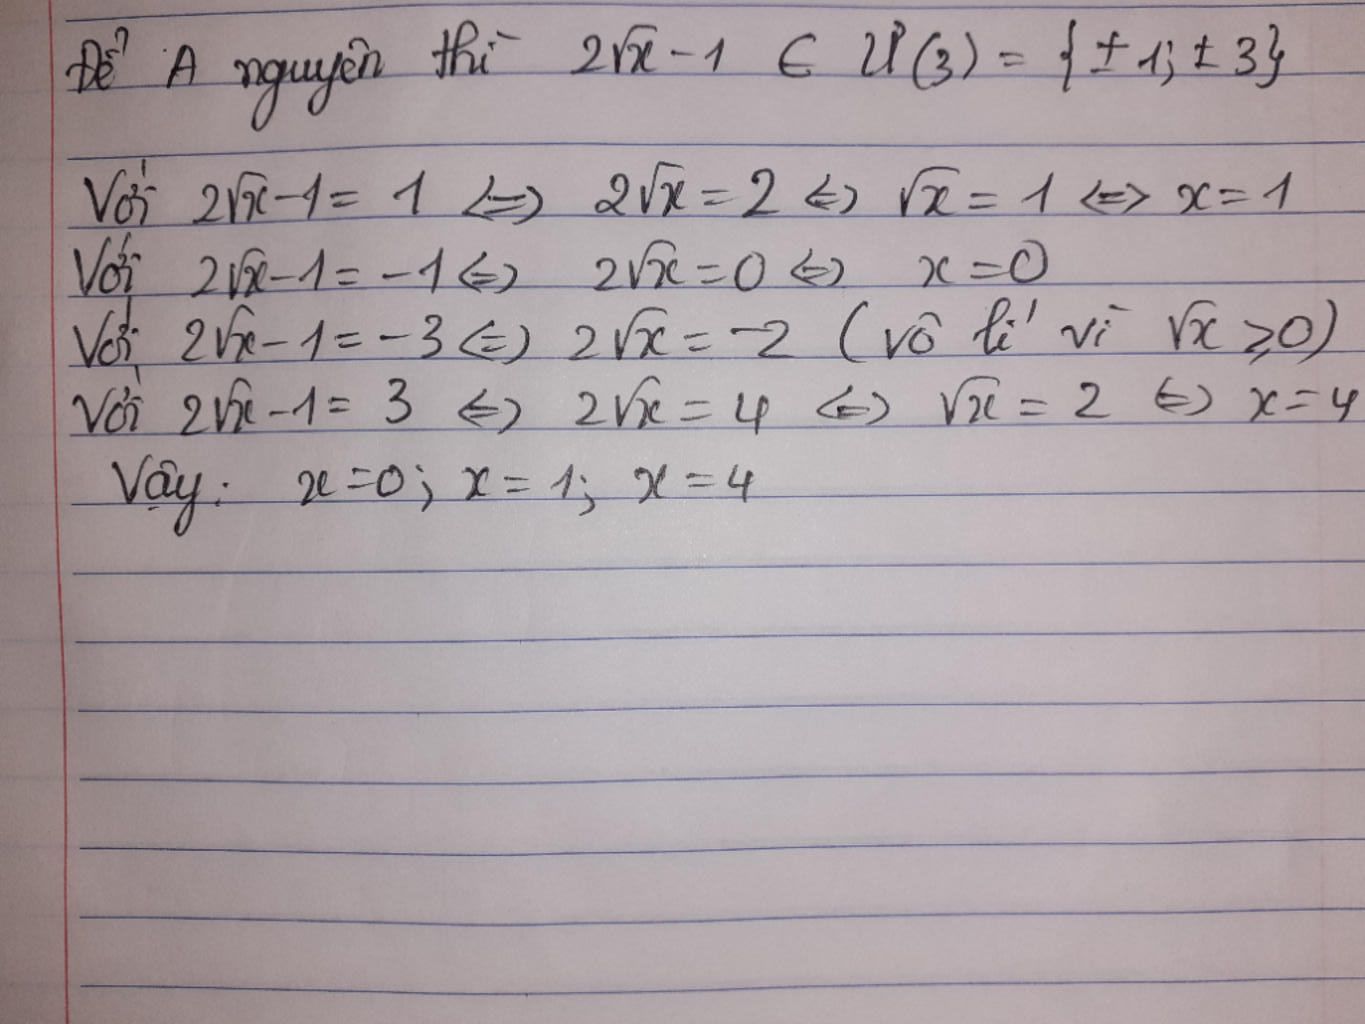 Để A nguyên thì 2√x - 1 ∈ Ư(3) = {± 1; ± 3}
Với 2√x - 1 = 1 <=> 2√x = 2 <=> √x = 1 <=> x = 1
Với 2√x - 1 = -1 <=> 2√x = 0 <=> x = 0
Với 2√x - 1 = -3 <=> 2√x = -2 (vô lí vì √x ⩾ 0)
Với 2√x - 1 = 3 <=> 2√x = 4 <=> √x = 2 <=> x = 4
Vậy: x = 0; x = 1; x = 4